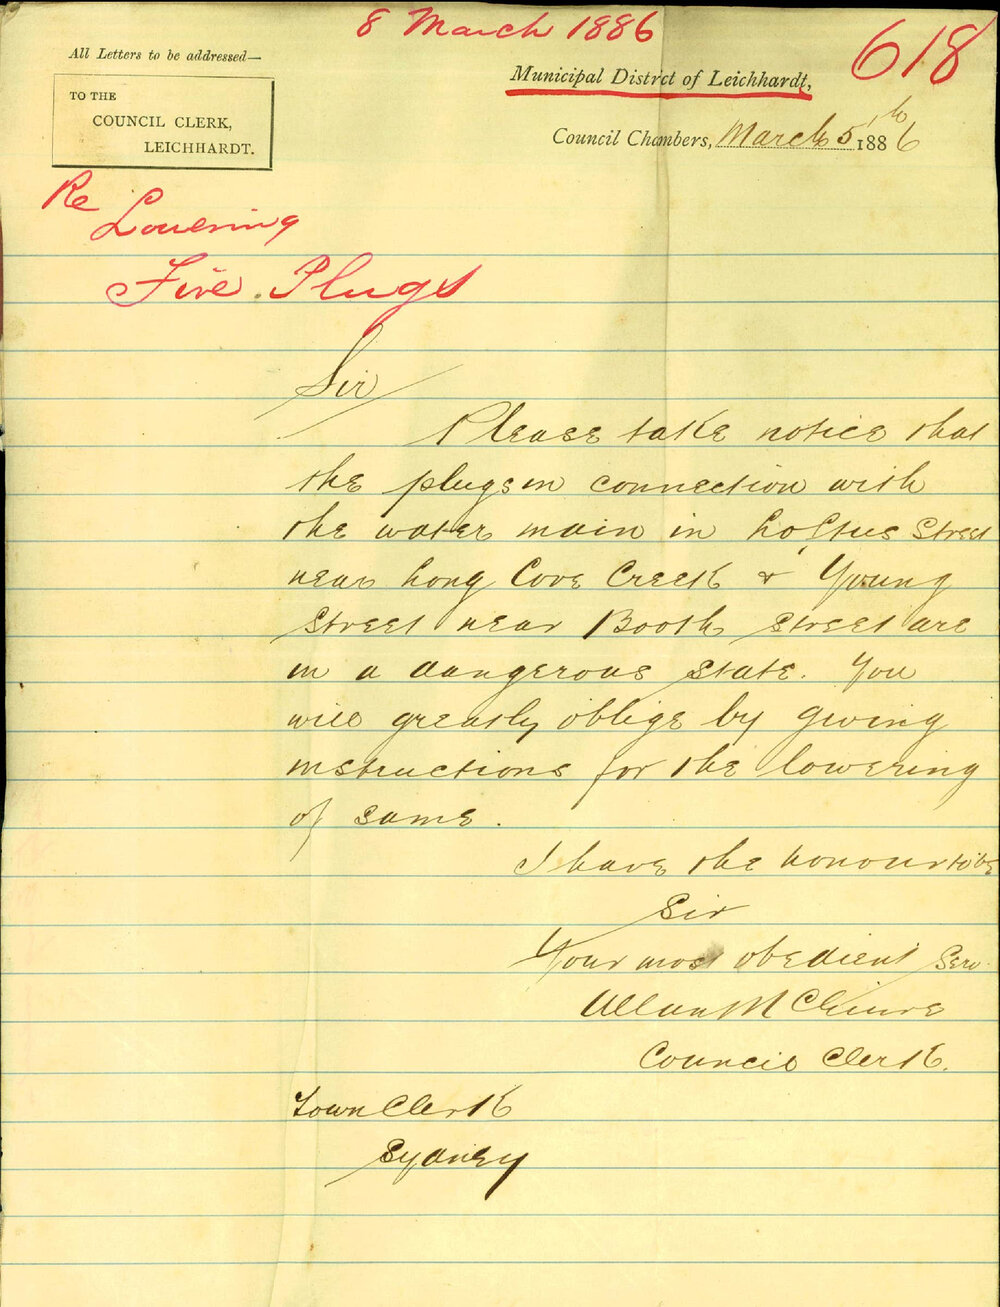 8 March 1886
618
All Letters to be addressed—
TO THE
COUNCIL CLERK,
LEICHHARDT.
Municipal District of Leichhardt,
Council Chambers, March 5th 1886
Re
Lowering
Fire Plugs
Sir
Please take notice that
the plugs in connection with
the water main in Loftus Street
near Long Cove Creek & Young
Street near Booth Street are
in a dangerous state. You
will greatly oblige by giving
instructions for the lowering
of same.
I have the honour to be
Sir
Your most obedient Serv
Allan
Council Clerk.
Town Clerk
Sydney